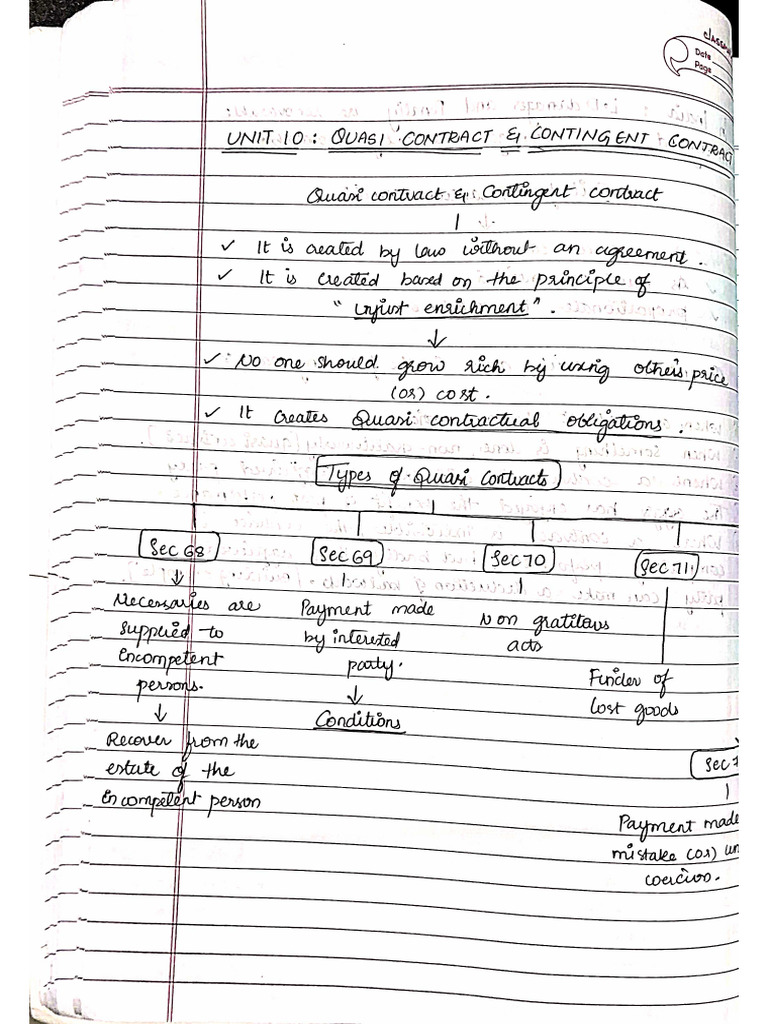 Date
Page
UNIT 10 : QUASI CONTRACT & CONTINGENT CONTRAC
Quasi contract & Contingent contract
✓ It is created by law without an agreement.
✓ It is created based on the principle of
" Unjust enrichment".
✓ No one should grow rich by using other's price
(or) cost.
✓ It creates Quasi contractual obligations.
Types of Quasi Contracts
Sec 68 Sec 69 Sec 70 Sec 71
Necessaries are Payment made Non gratitous
supplied to by interested acts
Incompetent party.
persons. Finder of
Conditions lost goods
Recover from the
estate of the Sec 7
Incompetent person
Payment made
mistake (or) un
coercion.